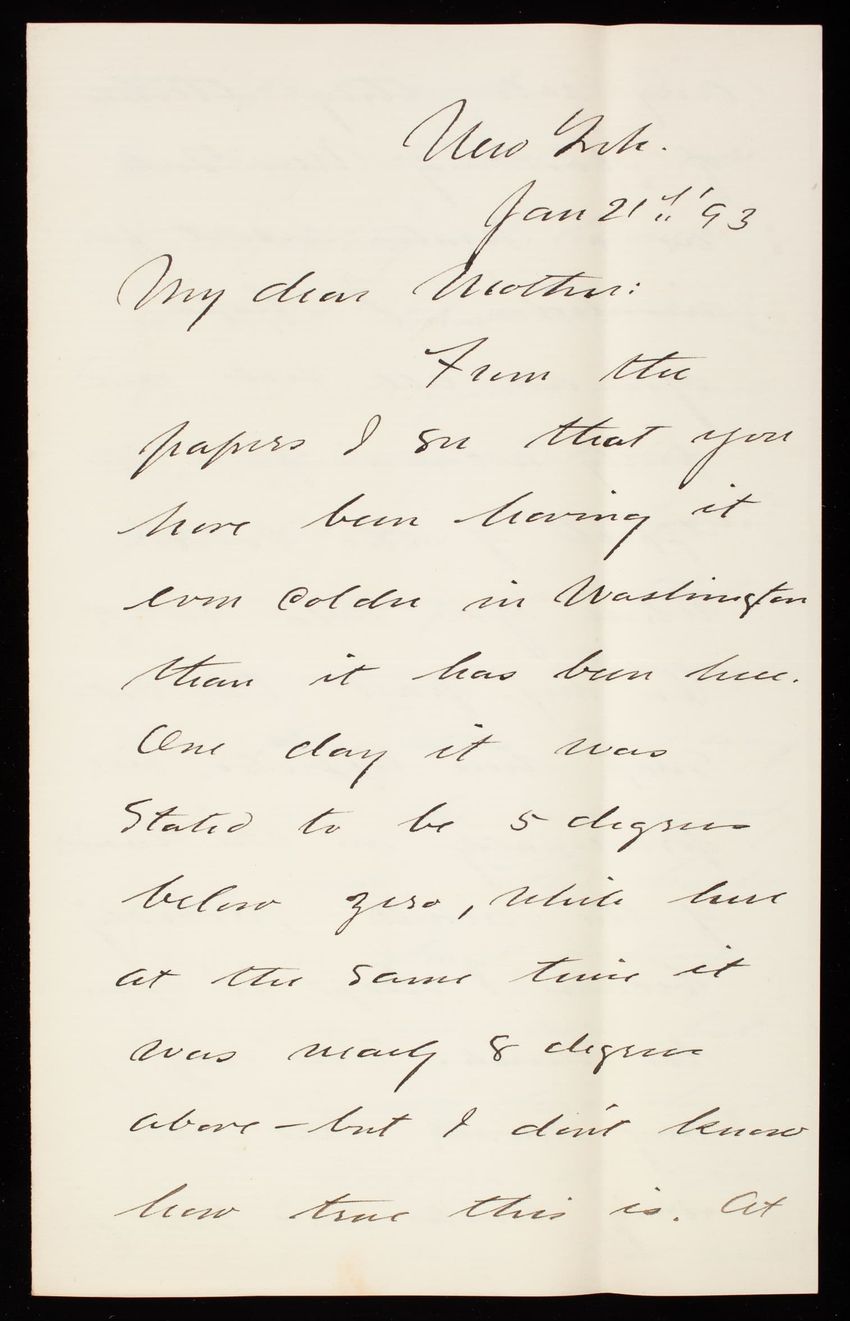 New York.
Jan 21st '93
My dear Mother:
From the
papers I see that you
have been having it
even colder in Washington
than it has been here.
One day it was
Stated to be 5 degrees
below zero, while here
at the same time it
was nearly 8 degrees
above - but I don't know
how true this is. At